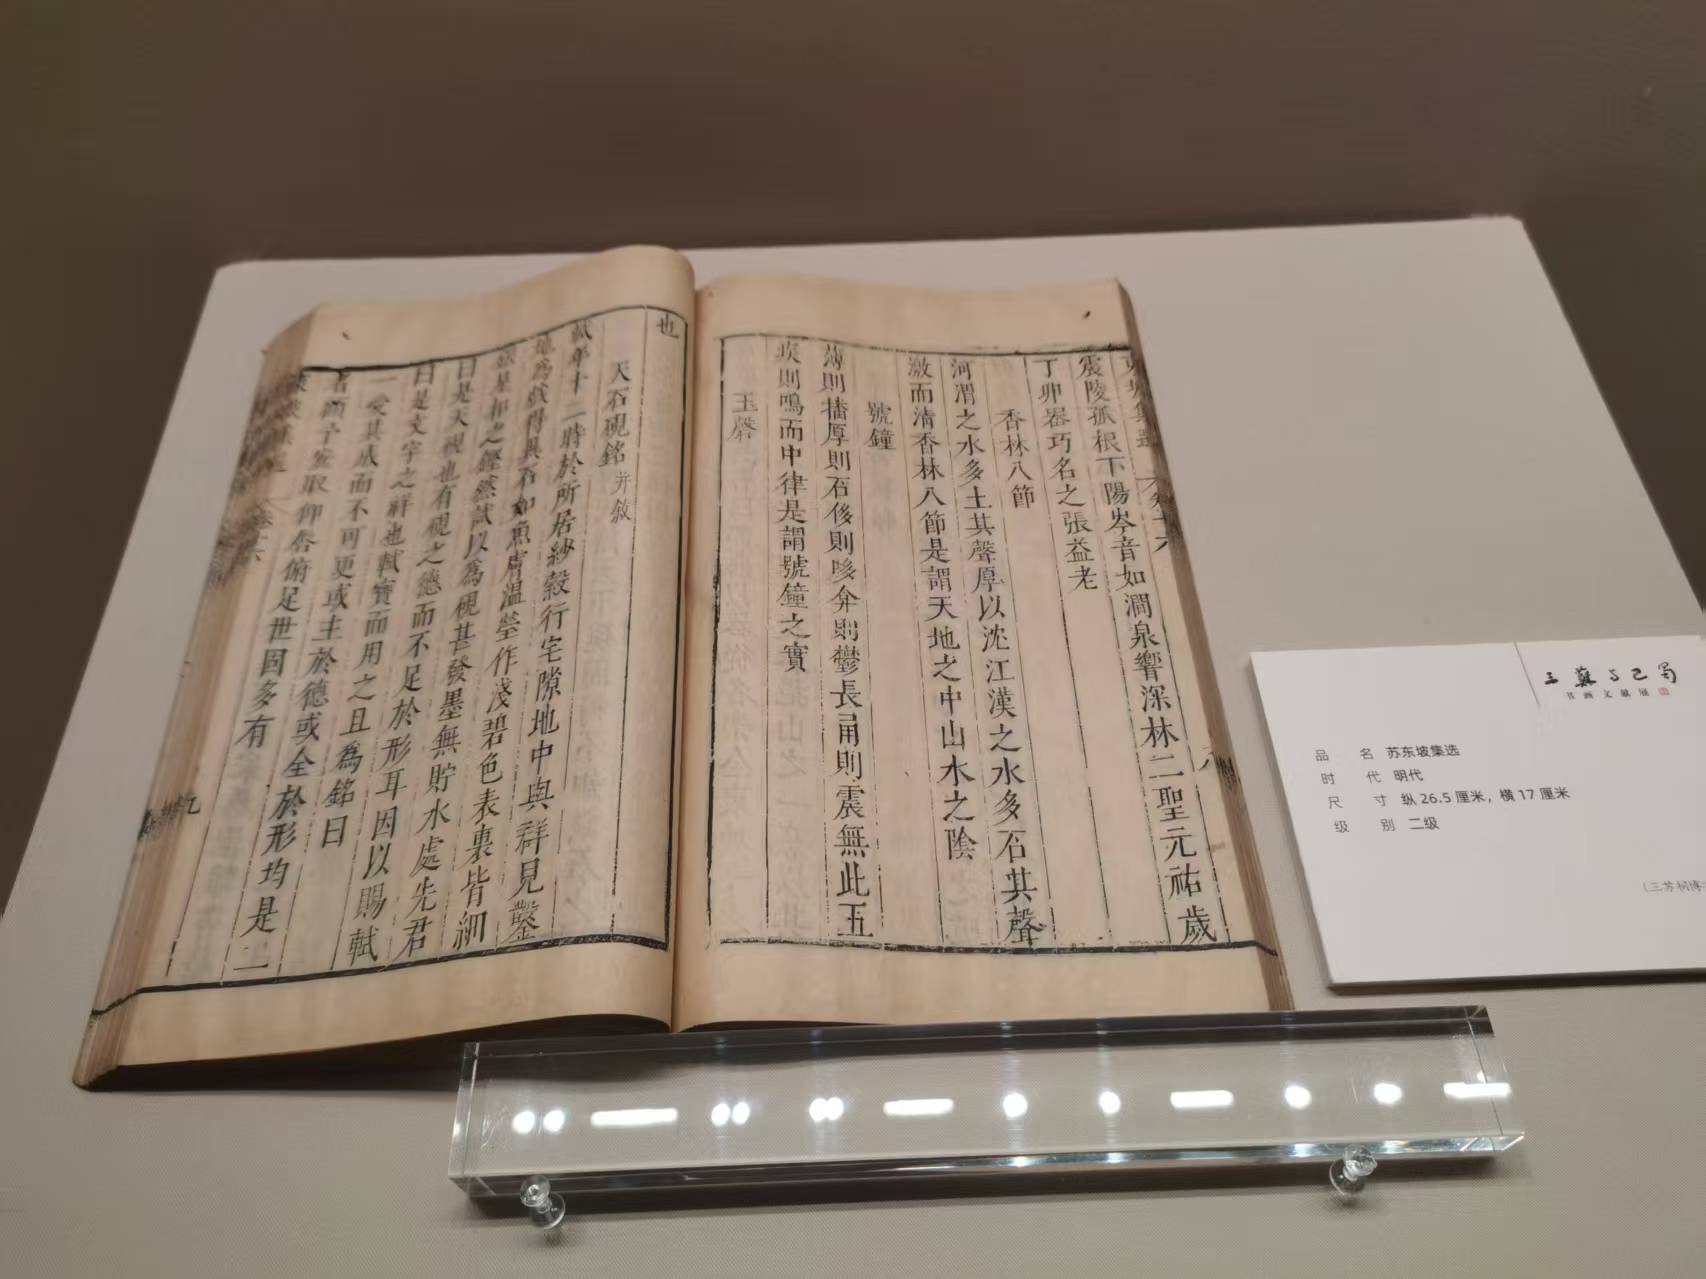 震陵孤根下陽岑音如澗泉響深林二聖元祐歲
丁卯器巧名之張益老
香林八節
河渭之水多土其聲厚以沈江漢之水多石其聲
激而清香林八節是謂天地之中山水之陰
號鐘
薄則播厚則石侈則哆弇則鬱長甬則震無此五
疾則鳴而中律是謂號鐘之實
玉磬
也
天石硯銘并敘
軾年十二時於所居紗縠行宅隙地中與群兒鑿
地為戲得異石如魚膚温瑩作淺碧色表裏皆細
銀星扣之鏗然試以為硯甚發墨無貯水處先君
曰是天硯也有硯之德而不足於形耳因以賜軾
曰是文字之祥也軾寶而用之且為銘曰
一受其成而不可更或主於德或全於形均是二
者顧予安取仰脣俯足世固多有
九
三蘇与巴蜀
书画文献展
品 名 苏东坡集选
时 代 明代
尺 寸 纵 26.5 厘米，横 17 厘米
级 别 二级
（三苏祠博